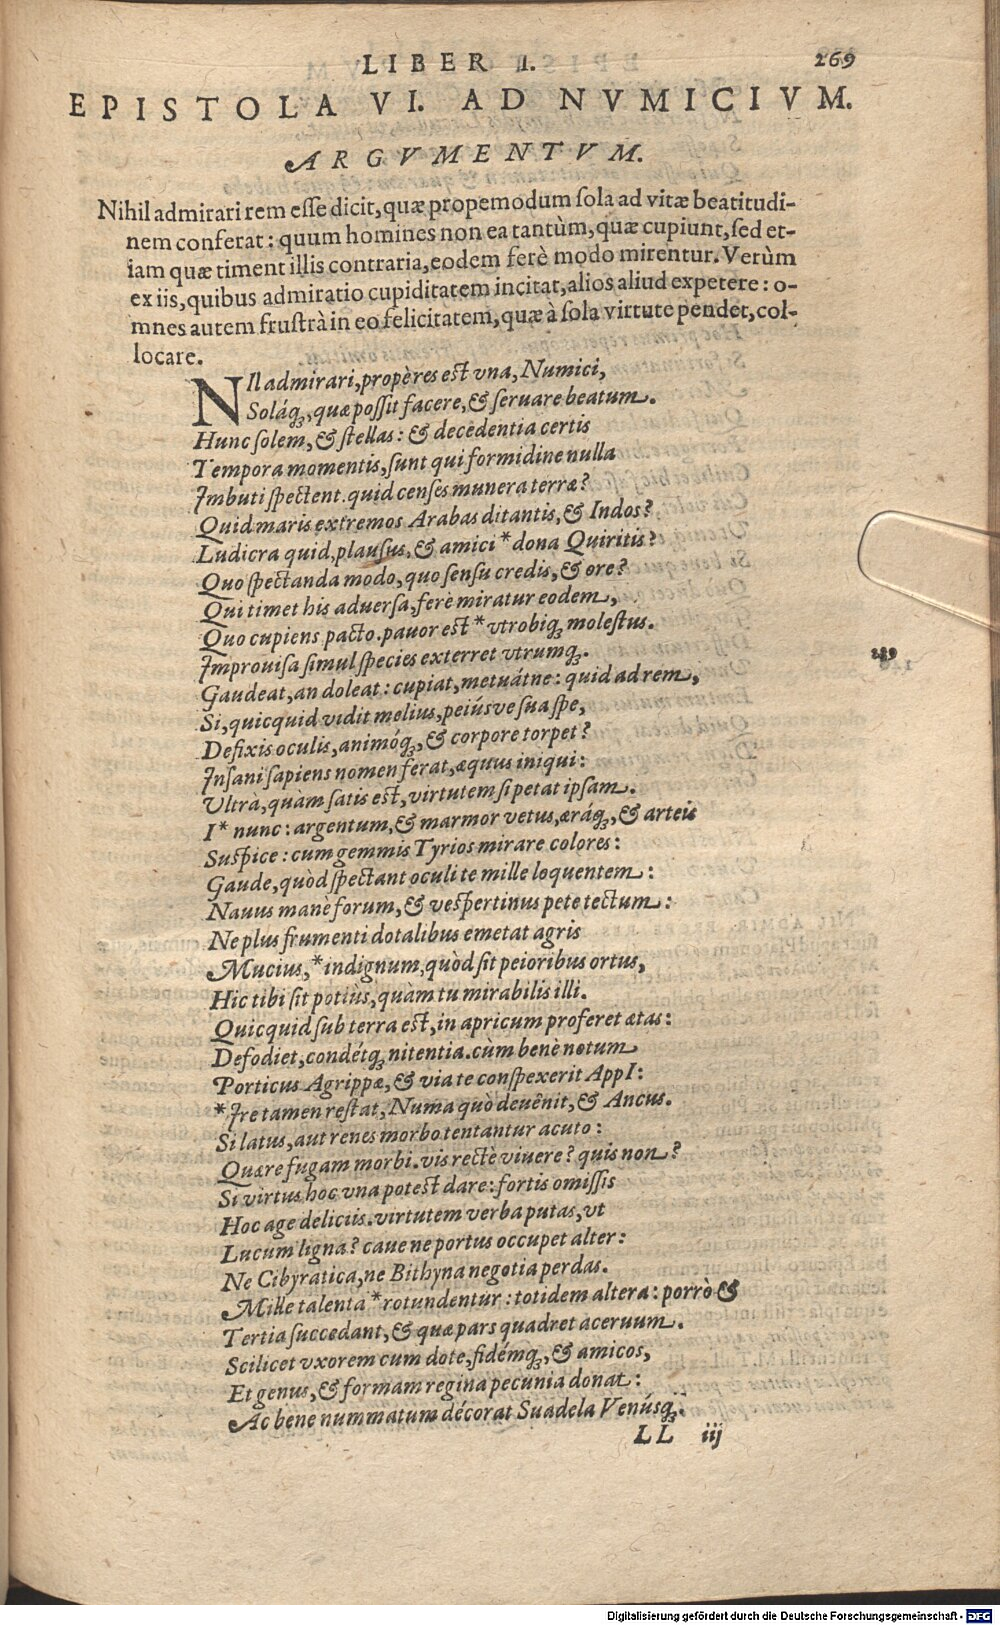 LIBER II. 269
EPISTOLA VI. AD NVMICIVM.
ARGVMENTVM.
Nihil admirari rem esse dicit, quæ propemodum sola ad vitæ beatitudi-
nem conferat: quum homines non ea tantùm, quæ cupiunt, sed et-
iam quæ timent illis contraria, eodem ferè modo mirentur. Verùm
ex iis, quibus admiratio cupiditatem incitat, alios aliud expetere: o-
mnes autem frustrà in eo felicitatem, quæ à sola virtute pendet, col-
locare.
NIl admirari, propè res est vna, Numici,
Soláq;, quæ possit facere, & seruare beatum.
Hunc solem, & stellas: & decedentia certis
Tempora momentis, sunt qui formidine nulla
Imbuti spectent. quid censes munera terræ?
Quid maris extremos Arabas ditantis, & Indos?
Ludicra quid, plausus, & amici * dona Quiritis?
Quo spectanda modo, quo sensu credis, & ore?
Qui timet his aduersa, ferè miratur eodem,
Quo cupiens pacto. pauor est * vtrobiq; molestus.
Improuisa simul species exterret vtrumq;.
Gaudeat, an doleat: cupiat, metuátne: quid ad rem,
Si, quicquid vidit melius, peiúsve sua spe,
Defixis oculis, animóq;, & corpore torpet?
Insani sapiens nomen ferat, æquus iniqui:
Vltrà, quàm satis est, virtutem si petat ipsam.
I * nunc: argentum, & marmor vetus, æráq;, & arteis
Suspice: cum gemmis Tyrios mirare colores:
Gaude, quòd spectant oculi te mille loquentem:
Nauus manè forum, & vespertinus pete tectum:
Ne plus frumenti dotalibus emetat agris
Mucius, * indignum, quòd sit peioribus ortus,
Hic tibi sit potiùs, quàm tu mirabilis illi.
Quicquid sub terra est, in apricum proferet ætas:
Defodiet, condétq; nitentia. cùm benè notum
Porticus Agrippæ, & via te conspexerit AppI:
* Ire tamen restat, Numa quò deuênit, & Ancus.
Si latus, aut renes morbo tentantur acuto:
Quære fugam morbi. vis recte viuere? quis non?
Si virtus hoc vna potest dare: fortis omissis
Hoc age deliciis. virtutem verba putas, vt
Lucum ligna? caue ne portus occupet alter:
Ne Cibyratica, ne Bithyna negotia perdas.
Mille talenta * rotundentur: totidem altera: porrò &
Tertia succedant, & quæ pars quadret aceruum.
Scilicet vxorem cum dote, fidémq;, & amicos,
Et genus, & formam regina pecunia donat:
Ac bene nummatum décorat Suadela Venúsq;.
LL iij
Digitalisierung gefördert durch die Deutsche Forschungsgemeinschaft - DFG